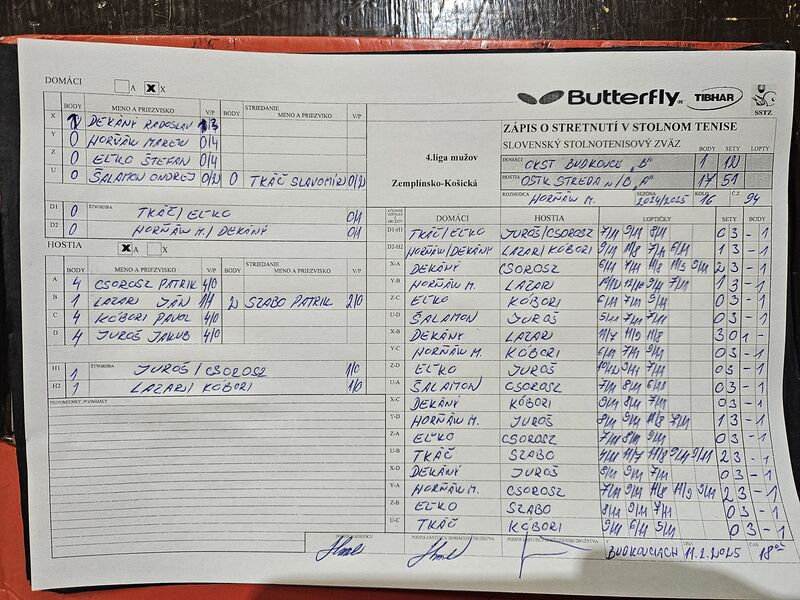 DOMÁCI A X X
Butterfly TIBHAR SSTZ
BODY MENO A PRIEZVISKO V/P BODY STRIEDANIE MENO A PRIEZVISKO V/P
X 1 DEKÁNY RADOSLAV 1/3
Y 0 HORŇÁK MAREK 0/4
Z 0 EĽKO ŠTEFAN 0/4
U 0 ŠALAMON ONDREJ 0/2 0 TKÁČ SLAVOMÍR 0/2
ŠTVORHRA
D1 0 TKÁČ/EĽKO 0/1
D2 0 HORŇÁK M./DEKÁNY 0/1
HOSTIA A X X
BODY MENO A PRIEZVISKO V/P BODY STRIEDANIE MENO A PRIEZVISKO V/P
A 4 CSOROSZ PATRIK 4/0
B 1 LAZARI JÁN 1/1 2 SZABO PATRIK 2/0
C 4 KÓBORI PAVOL 4/0
D 4 JUROŠ JAKUB 4/0
ŠTVORHRA
H1 1 JUROŠ/CSOROSZ 1/0
H2 1 LAZARI/KÓBORI 1/0
PRIPOMIENKY, POZNÁMKY
4.liga mužov
Zemplínsko-Košická
ZÁPIS O STRETNUTÍ V STOLNOM TENISE
SLOVENSKÝ STOLNOTENISOVÝ ZVÄZ BODY SETY LOPTY
DOMÁCI OKST BUDKOVCE „B" 1 12
HOSTIA OŠTK STREDA N/B „A" 17 51
ROZHODCA HORŇÁK M. SEZÓNA 2024/2025 KOLO 16 Č.Z. 94
DOMÁCI HOSTIA LOPTIČKY SETY BODY
D1-H1 TKÁČ/EĽKO JUROŠ/CSOROSZ 7/11 9/11 7/11 0 3 - 1
D2-H2 HORŇÁK/DEKÁNY LAZARI/KÓBORI 9/11 11/8 7/11 6/11 1 3 - 1
X-A DEKÁNY CSOROSZ 6/11 7/11 11/8 11/9 9/11 2 3 - 1
Y-B HORŇÁK M. LAZARI 9/11 7/11 1 3 - 1
Z-C EĽKO KÓBORI 6/11 7/11 9/11 0 3 - 1
U-D ŠALAMON JUROŠ 5/11 7/11 7/11 0 3 - 1
X-B DEKÁNY LAZARI 11/7 11/9 11/8 3 0 1 -
Y-C HORŇÁK M. KÓBORI 6/11 7/11 9/11 0 3 - 1
Z-D EĽKO JUROŠ 9/11 7/11 0 3 - 1
U-A ŠALAMON CSOROSZ 7/11 8/11 6/11 0 3 - 1
X-C DEKÁNY KÓBORI 9/11 8/11 7/11 0 3 - 1
Y-D HORŇÁK M. JUROŠ 8/11 9/11 11/8 7/11 1 3 - 1
Z-A EĽKO CSOROSZ 7/11 8/11 9/11 0 3 - 1
U-B TKÁČ SZABO 4/11 11/7 11/8 9/11 9/11 2 3 - 1
X-D DEKÁNY JUROŠ 9/11 9/11 7/11 0 3 - 1
Y-A HORŇÁK M. CSOROSZ 7/11 9/11 11/8 11/9 9/11 2 3 - 1
Z-B EĽKO SZABO 8/11 9/11 7/11 0 3 - 1
U-C TKÁČ KÓBORI 9/11 6/11 5/11 0 3 - 1
PODPIS ROZHODCU PODPIS ZÁSTUPCU DOMÁCEHO DRUŽSTVA
V BUDKOVCIACH DŇA 11.2.2025 ČAS